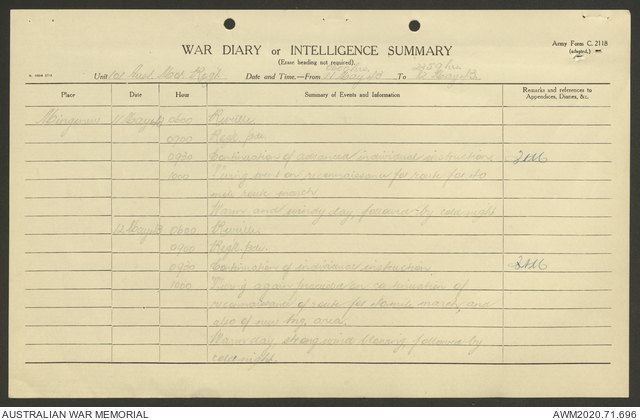 WAR DIARY or INTELLIGENCE SUMMARY
(Erase heading not required).
Army Form C. 2118
(adapted.)
Unit 101 Aust Mot Regt Date and Time—From 0001 hrs 11 May To 2359 hrs 12 May
Place Date Hour Summary of Events and Information Remarks and references to Appendices, Diaries, &c.
Mingenew 11 May 0600 Reveille
0900 Regt.
0930 Continuation of advanced individual instructions
1000 went on reconnaissance for route for
mile route march
Warm and windy day, followed by cold night
12 May 0600 Reveille
0900 Regt.
0930 Continuation of individual instruction
1000 again proceeded on continuation of
reconnaissance of route for mile march, and
also of area.
Warm day, strong wind blowing followed by
cold night.
AUSTRALIAN WAR MEMORIAL
AWM2020.71.696